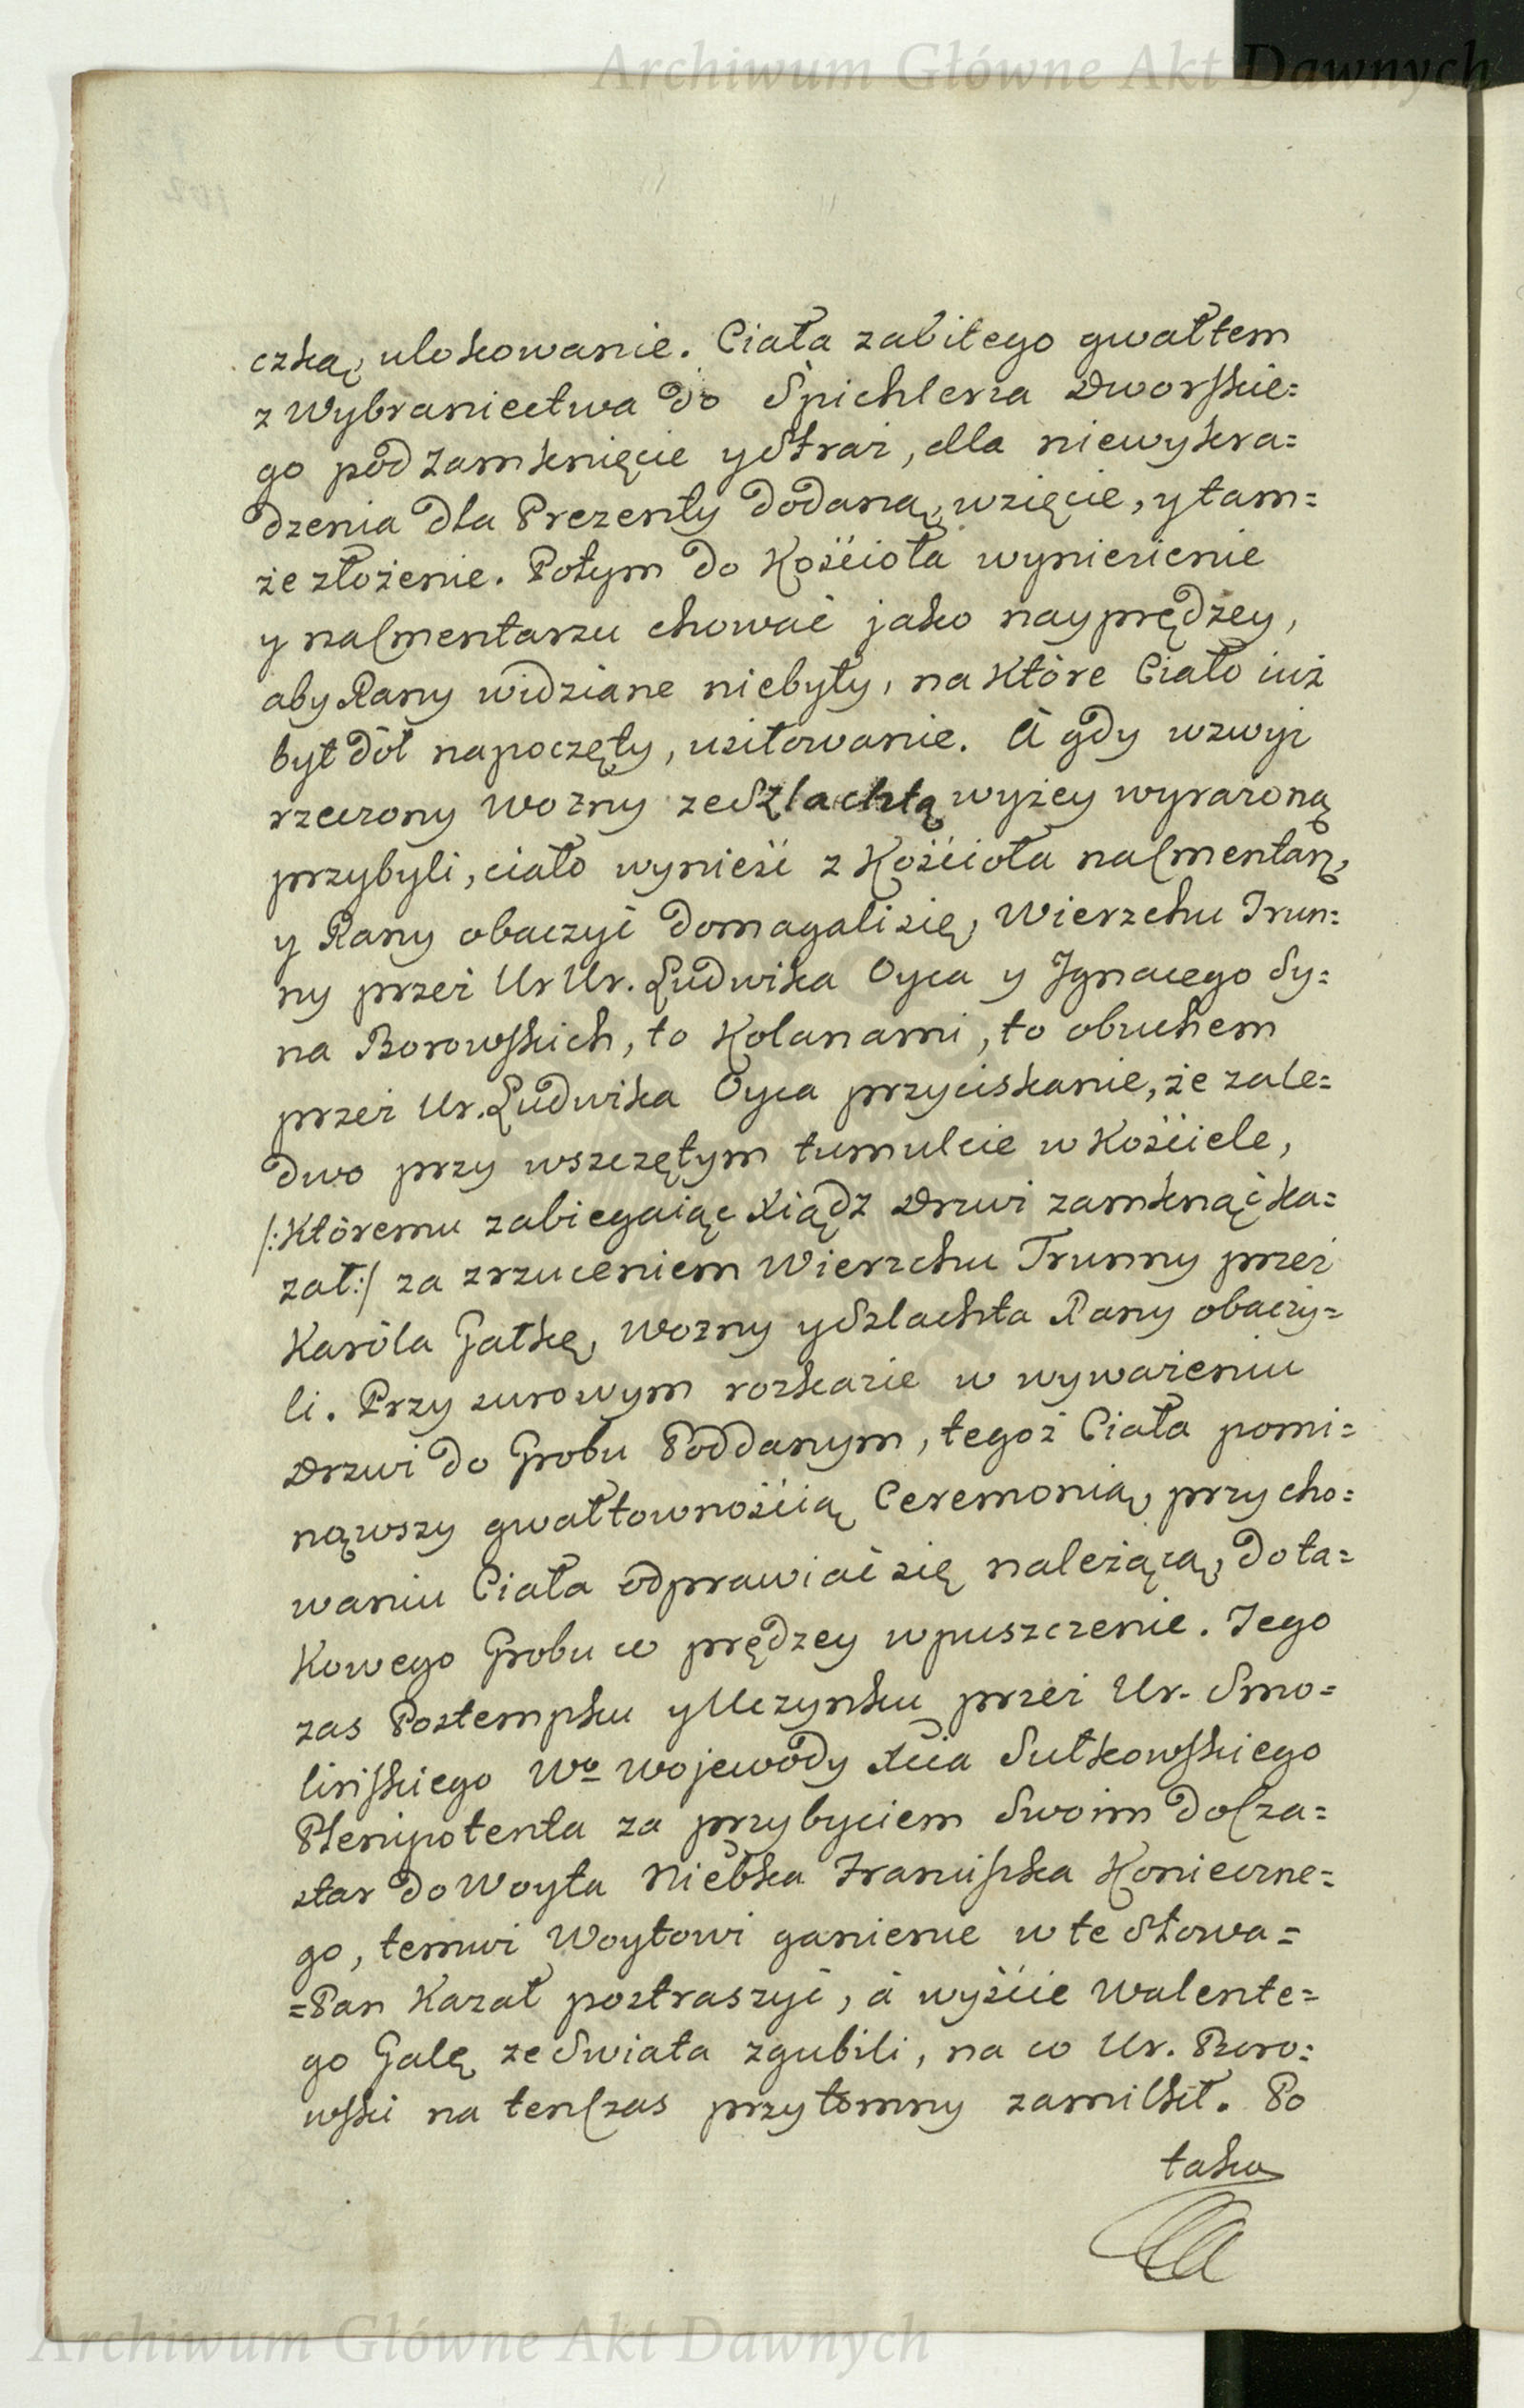 Archiwum Główne Akt Dawnych
czką, ulokowanie. Ciała zabitego gwałtem
z Wybraniectwa do Spichlerza Dworskie=
go pod zamknięcie y Straż, dla niewykra=
dzenia dla Prezenty dodaną, wzięcie, y tam=
że złożenie. Potym do Kościoła wyniesienie
y na Cmentarzu chować jako nayprędzey,
aby Rany widziane niebyły, na które Ciało iuż
był dół napoczęty, usiłowanie. A gdy wzwyż
rzeczony Wozny ze Szlachtą wyżey wyrażoną
przybyli, ciało wynieść z Kościoła na Cmentarz,
y Rany obaczyć domagali się, Wierzchu Trun=
ny przez Ur Ur. Ludwika Oyca y Ignacego Sy=
na Borowskich, to Kolanami, to obuchem
przez Ur. Ludwika Oyca przyciskanie, że zale=
dwo przy wszczętym tumulcie w Kościele,
/:Któremu zabiegaiąc Xiądz Drzwi zamknąć ka=
zał:/ za zrzuceniem Wierzchu Trunny przez
Karóla Gałkę, Wozny y Szlachta Rany obaczy=
li. Przy surowym rozkazie w wyważeniu
Drzwi do Grobu Poddanym, tegoż Ciała pomi=
nąwszy gwałtownością Ceremonią, przy cho=
waniu Ciała odprawiać się należącą, do ta=
kowego Grobu co prędzey wpuszczenie. Tego
zas Postempku y Uczynku przez Ur. Smo=
linskiego Wo Wojewody Xcia Sułkowskiego
Plenipotenta za przybyciem Swoim do Cza=
star do Woyta Niebka Franciszka Konieczne=
go, temuż Woytowi ganienie w te Słowa=
=Pan Kazał postraszyć, á wyście Walente=
go Galę ze Swiata zgubili, na co Ur. Boro=
wski na ten Czas przytomny zamilkł. Po
tako
Archiwum Główne Akt Dawnych